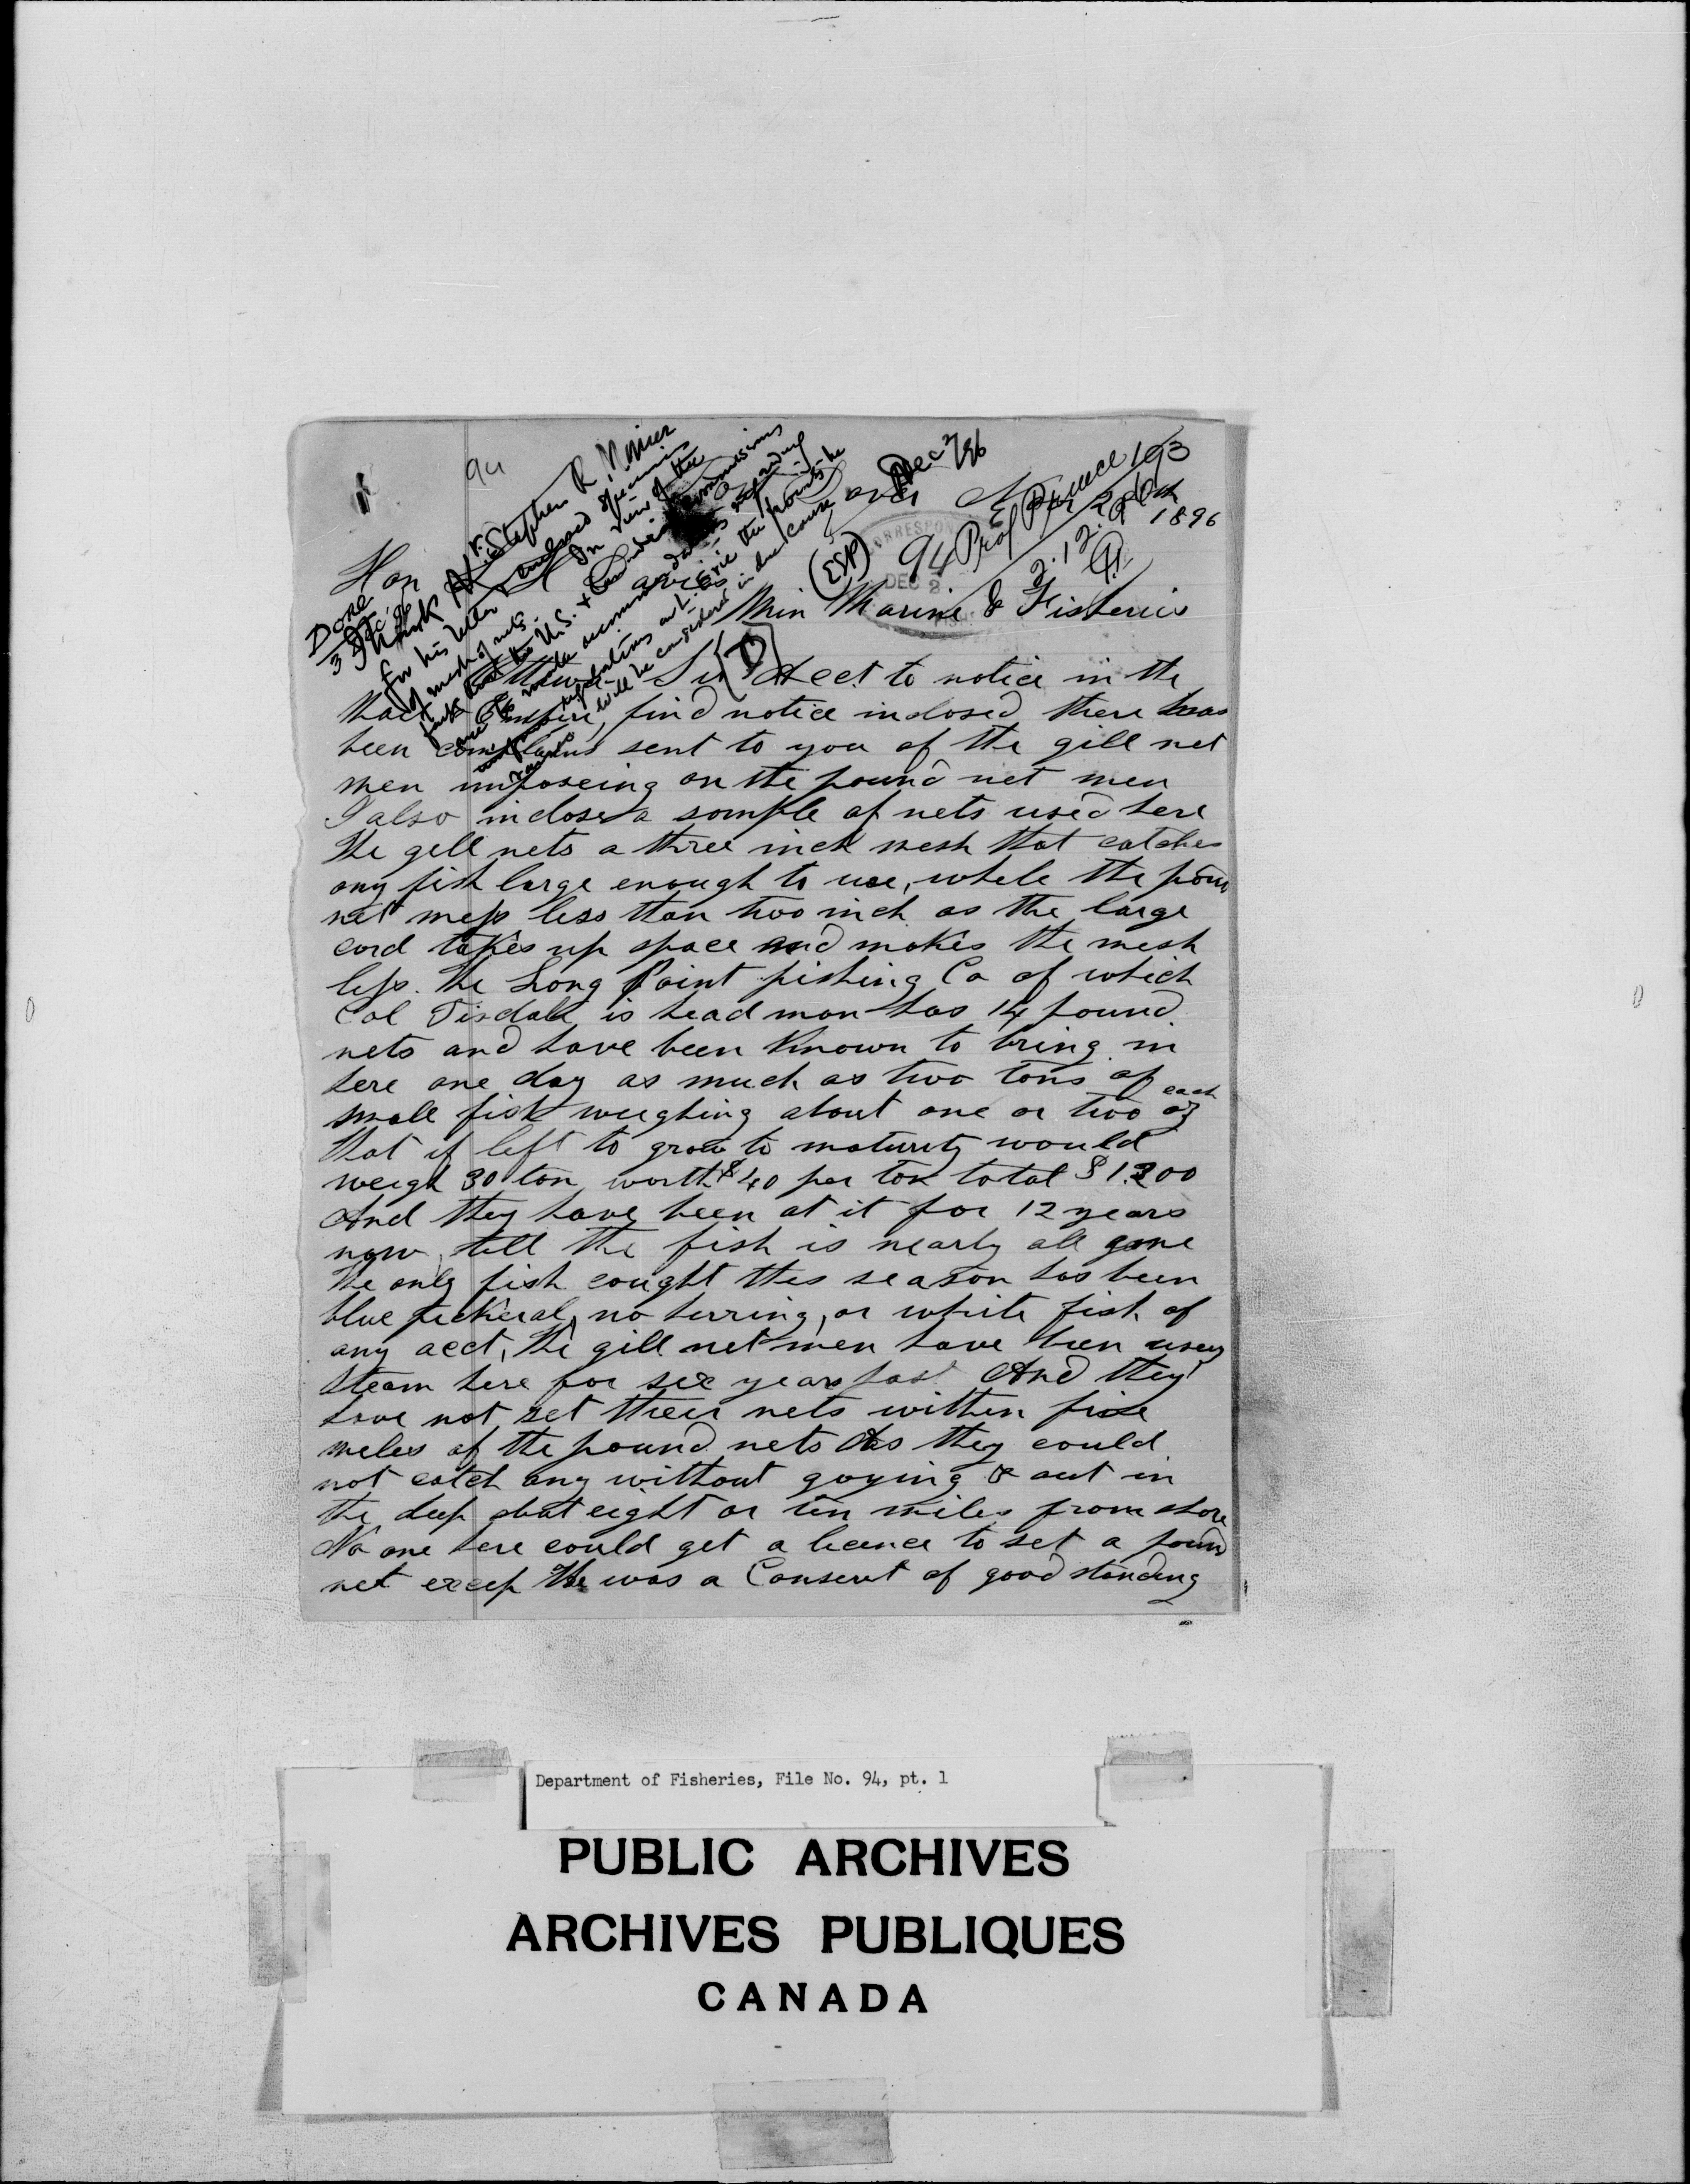 94
Dec 2/96
Prof Prince 103
2.12.96
(EEP) 94
DEC 2
1896
Done
3 Dec
Thank Mr. Stephen R.
for his letter & enclosed specimens
of mesh of nets. In view of the
fact that the U.S. & Canadian Commissions
are to make recommendations regarding
regulations on L. Erie the points he
raises will be considered in due course
Hon
Min Marine & Fisheries
Sir
Act to notice in the
Empire, find notice inclosed there has
been complains sent to you of the gill net
men imposeing on the pound net men
I also inclose a somple of nets used here
The gill nets a three inch mesh that catches
any fish large enough to use, while the poun
net mess less than two inch as the large
cord takes up space and makes the mesh
less. The Long Point fishing Co of which
Col Tisdale is head man has 14 pound
nets and have been known to bring in
here one day as much as two tons of
small fish weighing about one or two oz each
that if left to grow to maturity would
weigh 30 ton worth $40 per ton total $1.200
And they have been at it for 12 years
now till the fish is nearly all gone
The only fish cought this season has been
blue pickeral, no herring, or white fish of
any acct, The gill net men have been useng
steam here for six years past And they
have not set their nets within five
miles of the pound nets As they could
not catch any without goying out in
the deep abat eight or ten miles from shore
No one here could get a licence to set a poun
net excep he was a Conservt of good standing
Department of Fisheries, File No. 94, pt. 1
PUBLIC ARCHIVES
ARCHIVES PUBLIQUES
CANADA